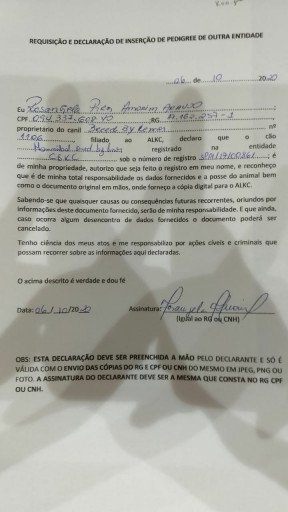 REQUISIÇÃO E DECLARAÇÃO DE INSERÇÃO DE PEDIGREE DE OUTRA ENTIDADE
06 de 10 2020
Eu Rosangela Pien Amorim
CPF
proprietário do canil nº
1106, filiado ao ALKC, declaro que o cão
registrado na entidade
sob o número de registro ; é
de minha propriedade, autorizo que seja feito o registro em meu nome, e reconheço
que é de minha total responsabilidade os dados fornecidos e a posse do animal bem
como o documento original em mãos, onde forneço a cópia digital para o ALKC.
Sabendo-se que quaisquer causas ou consequências futuras recorrentes, oriundos por
informações deste documento fornecido, serão de minha responsabilidade. E que ainda,
caso ocorra algum desencontro de dados fornecidos o documento poderá ser
cancelado.
Tenho ciência dos meus atos e me responsabilizo por ações cíveis e criminais que
possam recorrer sobre as informações aqui declaradas.
O acima descrito é verdade e dou fé
Data: 06/10/2020 Assinatura:
(Igual ao RG ou CNH)
OBS: ESTA DECLARAÇÃO DEVE SER PREENCHIDA A MÃO PELO DECLARANTE E SÓ É
VÁLIDA COM O ENVIO DAS CÓPIAS DO RG E CPF OU CNH DO MESMO EM JPEG, PNG OU
FOTO. A ASSINATURA DO DECLARANTE DEVE SER A MESMA QUE CONSTA NO RG CPF
OU CNH.